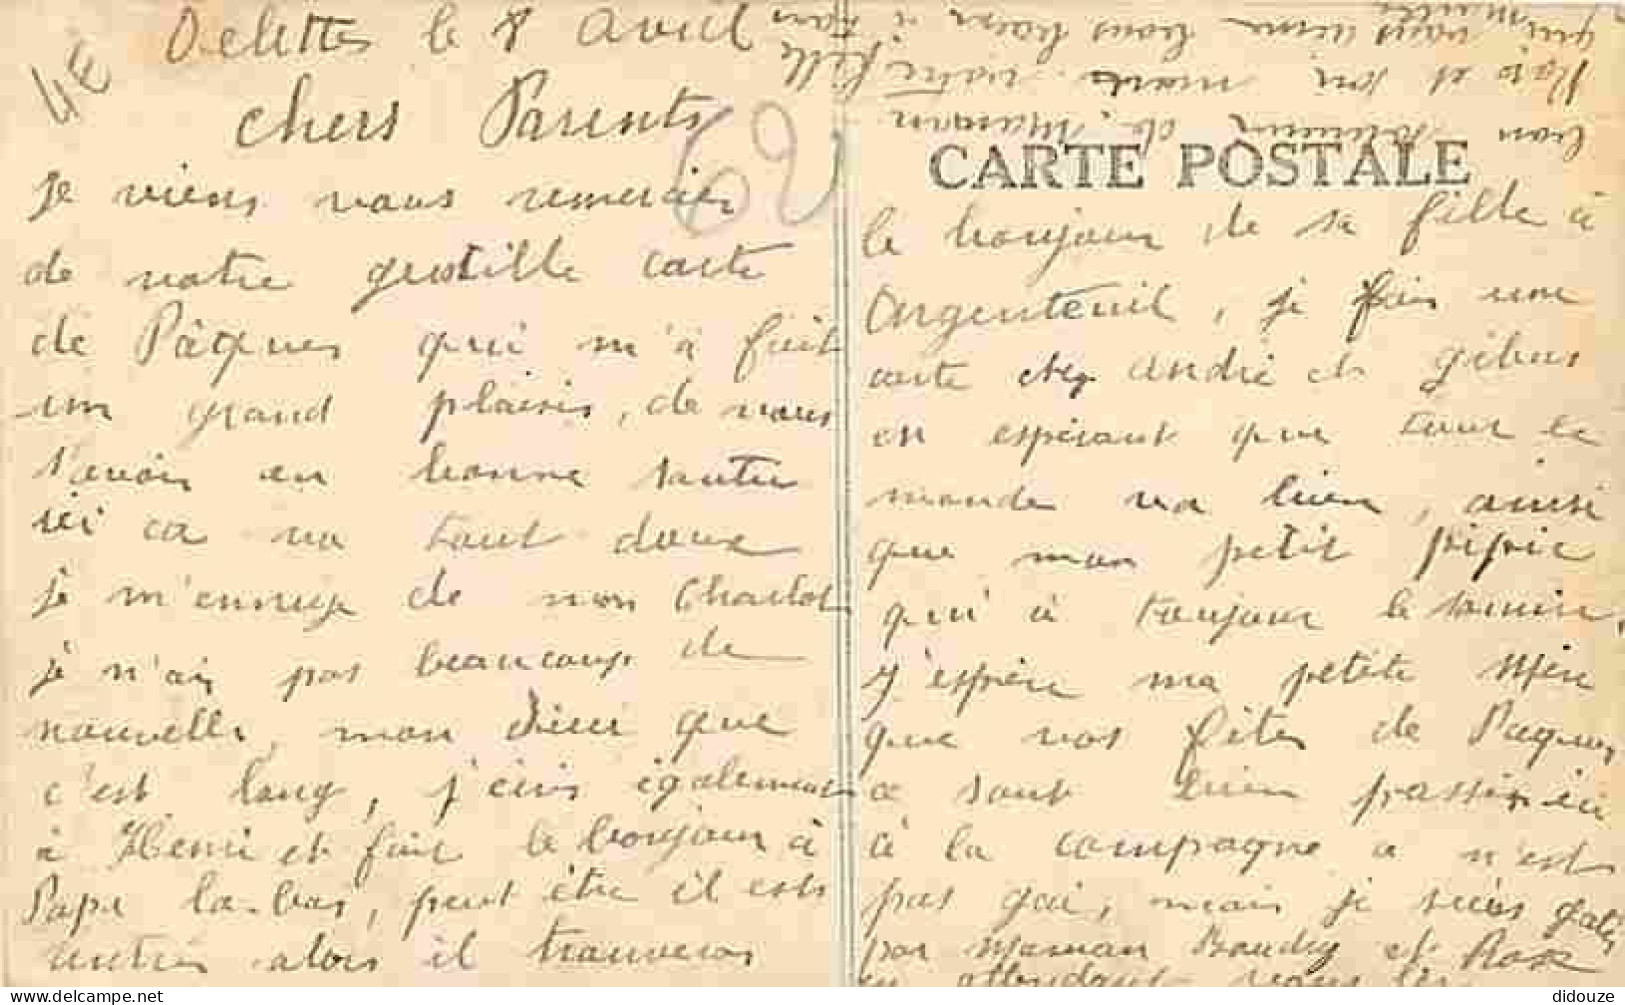 4e
Delettes le 8 avril
chers Parents
62
je viens vous remercier
de votre gentille carte
de Pâques qui m'a fait
un grand plaisir, de vous
savoir en bonne santée
ici ca va tout doux
je m'ennuye de mon Charlot
je n'ai pas beaucoup de
nouvelle, mon dieu que
c'est long, j'écris également
à Henri et fait le bonjour à
Papa la-bas, peut être il ests
rentrés alors il trouveras
CARTE POSTALE
le bonjour de sa fille à
Argenteuil, je fais une
carte chez André et
en espérant que tout le
monde va bien, ainsi
que mon petit pipic
qui à toujour le sourire,
j'espère ma petite Mère
que vos fêtes de Paques
ce sont bien passés, ici
à la campagne ce n'est
pas gai, mais je suis gatés
par Maman Baudry et Rose
en attendant vous les
bon de Maman
Rose et soi votre fille
qui vous aime bous bons
didouze